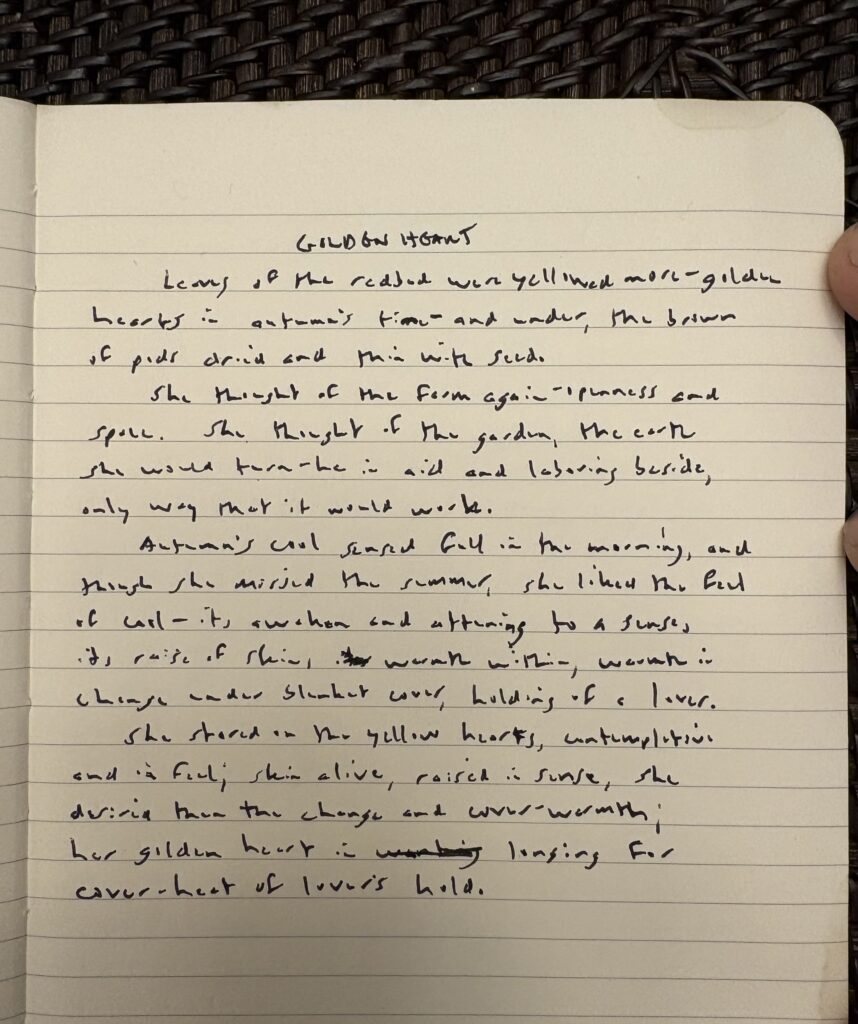 GOLDEN HEART
Leaves of the redbud were yellowed more-golden
hearts in autumn's time-and under, the brown
of pods dried and thin with seed.
She thought of the farm again-openness and
space. She thought of the garden, the earth
she would turn-he in aid and laboring beside,
only way that it would work.
Autumn's cool sensed full in the morning, and
though she missed the summer, she liked the feel
of cool-its awaken and attuning to a sense,
its raise of skin, warmth within, warmth in
change under blanket cover, holding of a lover.
She stared on the yellow hearts, contemplative
and in feel; skin alive, raised in sense, she
desired then the change and cover-warmth;
her golden heart in longing for
cover-heat of lover's hold.